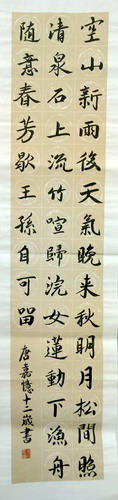 空山新雨後天氣晚来秋明月松間照
清泉石上流竹喧歸浣女蓮動下漁舟
随意春芳歇王孫自可留
唐嘉憶十二歲書